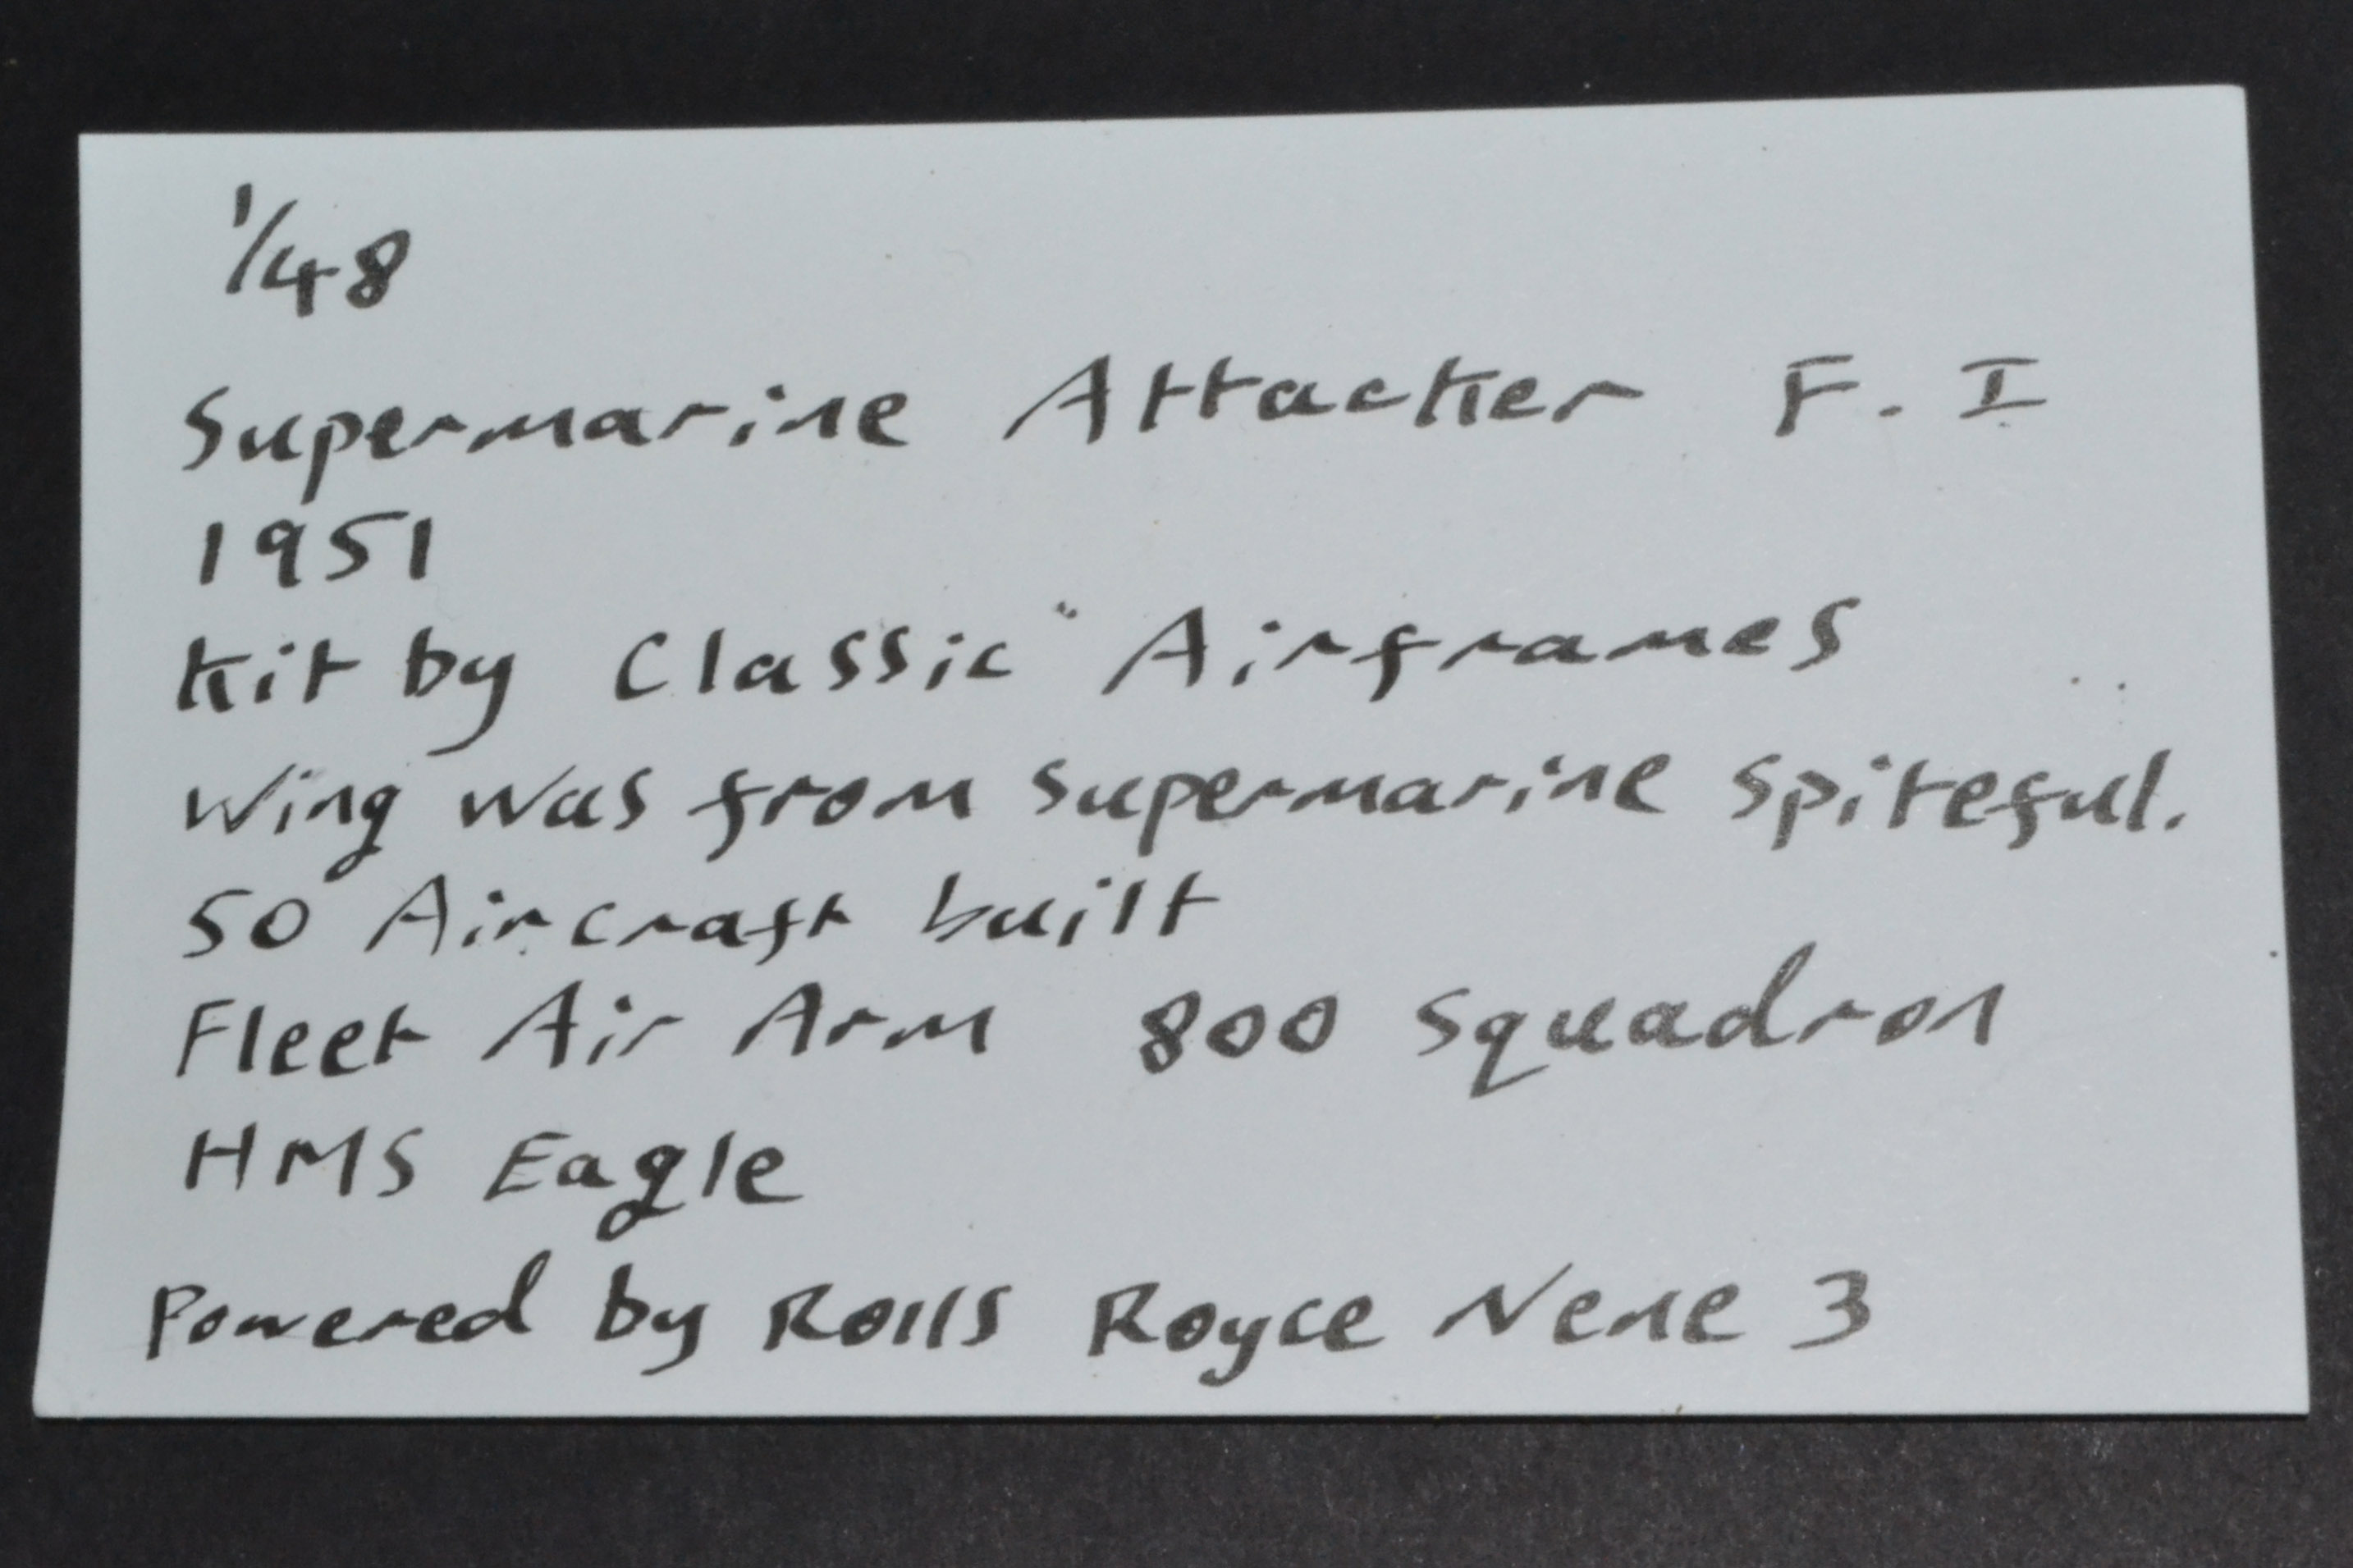 1/48
Supermarine Attacker F. I
1951
Kit by Classic Airframes
Wing was from Supermarine Spiteful.
50 Aircraft built
Fleet Air Arm 800 Squadron
HMS Eagle
Powered by Rolls Royce Nene 3